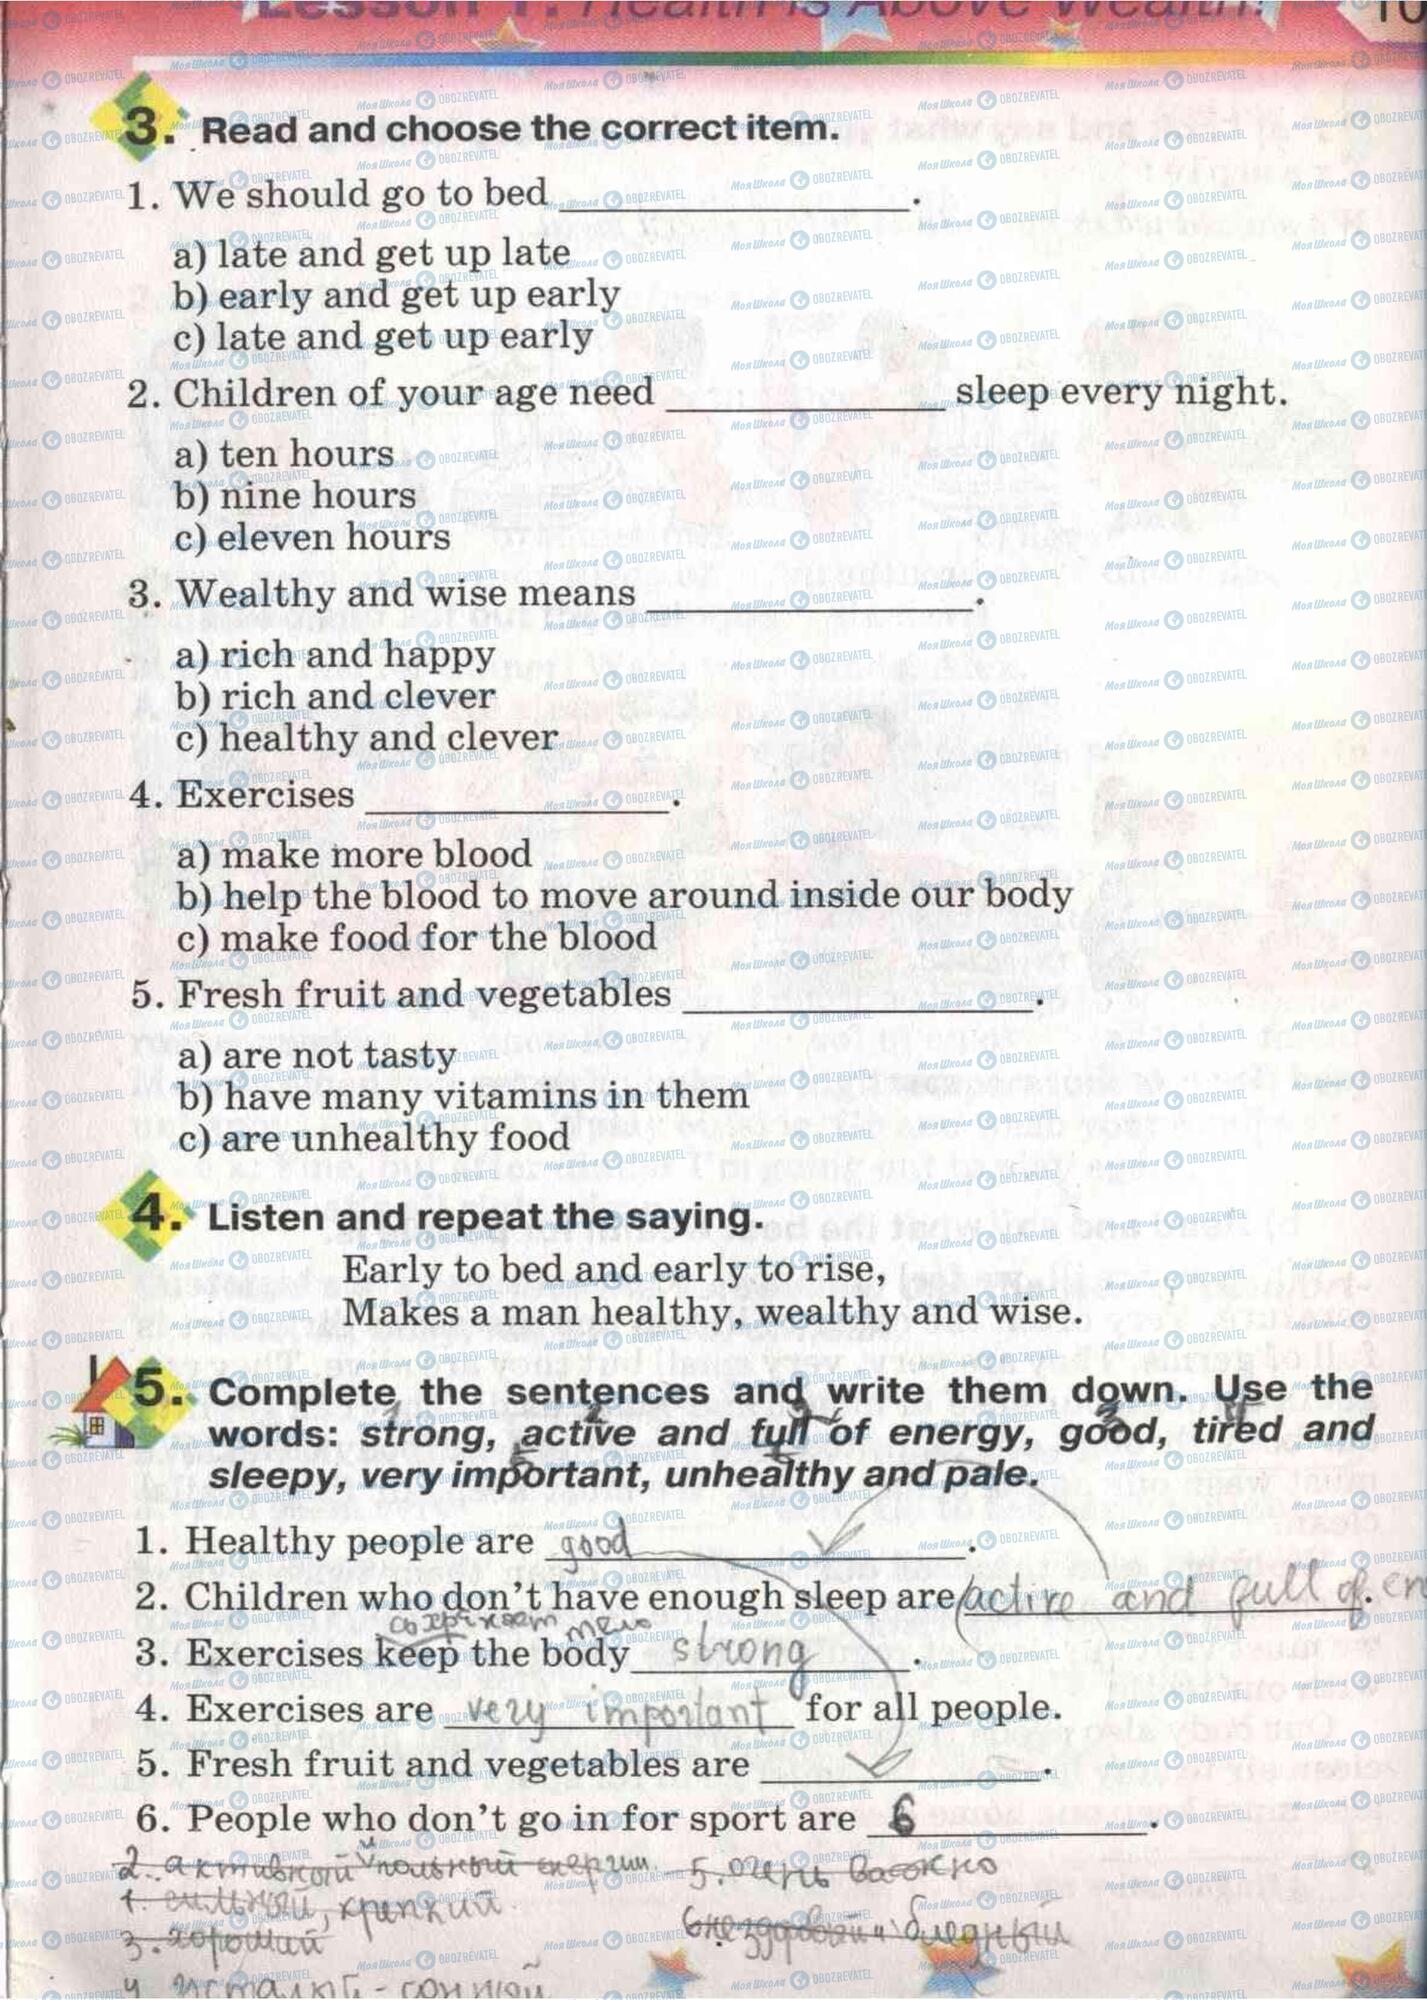 Lesson 1. Health is Above Wealth!
10
3. Read and choose the correct item.
1. We should go to bed ____.
a) late and get up late
b) early and get up early
c) late and get up early
2. Children of your age need ____ sleep every night.
a) ten hours
b) nine hours
c) eleven hours
3. Wealthy and wise means ____.
a) rich and happy
b) rich and clever
c) healthy and clever
4. Exercises ____.
a) make more blood
b) help the blood to move around inside our body
c) make food for the blood
5. Fresh fruit and vegetables ____.
a) are not tasty
b) have many vitamins in them
c) are unhealthy food
4. Listen and repeat the saying.
Early to bed and early to rise,
Makes a man healthy, wealthy and wise.
5. Complete the sentences and write them down. Use the
words: strong, active and full of energy, good, tired and
sleepy, very important, unhealthy and pale.
1. Healthy people are good.
2. Children who don't have enough sleep are active and full of en
тело
3. Exercises keep the body strong.
4. Exercises are very important for all people.
5. Fresh fruit and vegetables are ____.
6. People who don't go in for sport are 6.
2. активный польный енергии 5. очень важно
1. сильный, крепкий.
3. хороший 6 нездоровый и бледный
МояШкола OBOZREVATEL